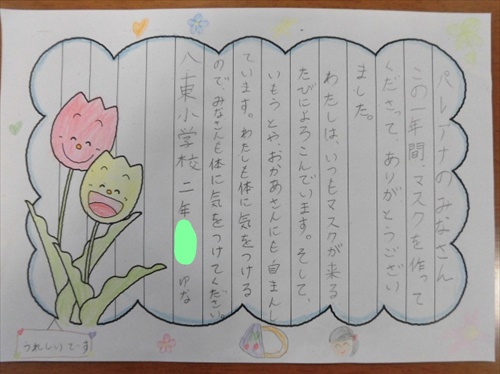 パレアナのみなさん
この一年間、マスクを作って
くださって、ありがとうござい
ました。
わたしは、いつもマスクが来る
たびによろこんでいます。そして、
いもうとや、おかあさんにも自まんし
ています。わたしも体に気をつける
ので、みなさんも体に気をつけてください。
八東小学校 二年 ゆな
うれしいでーす